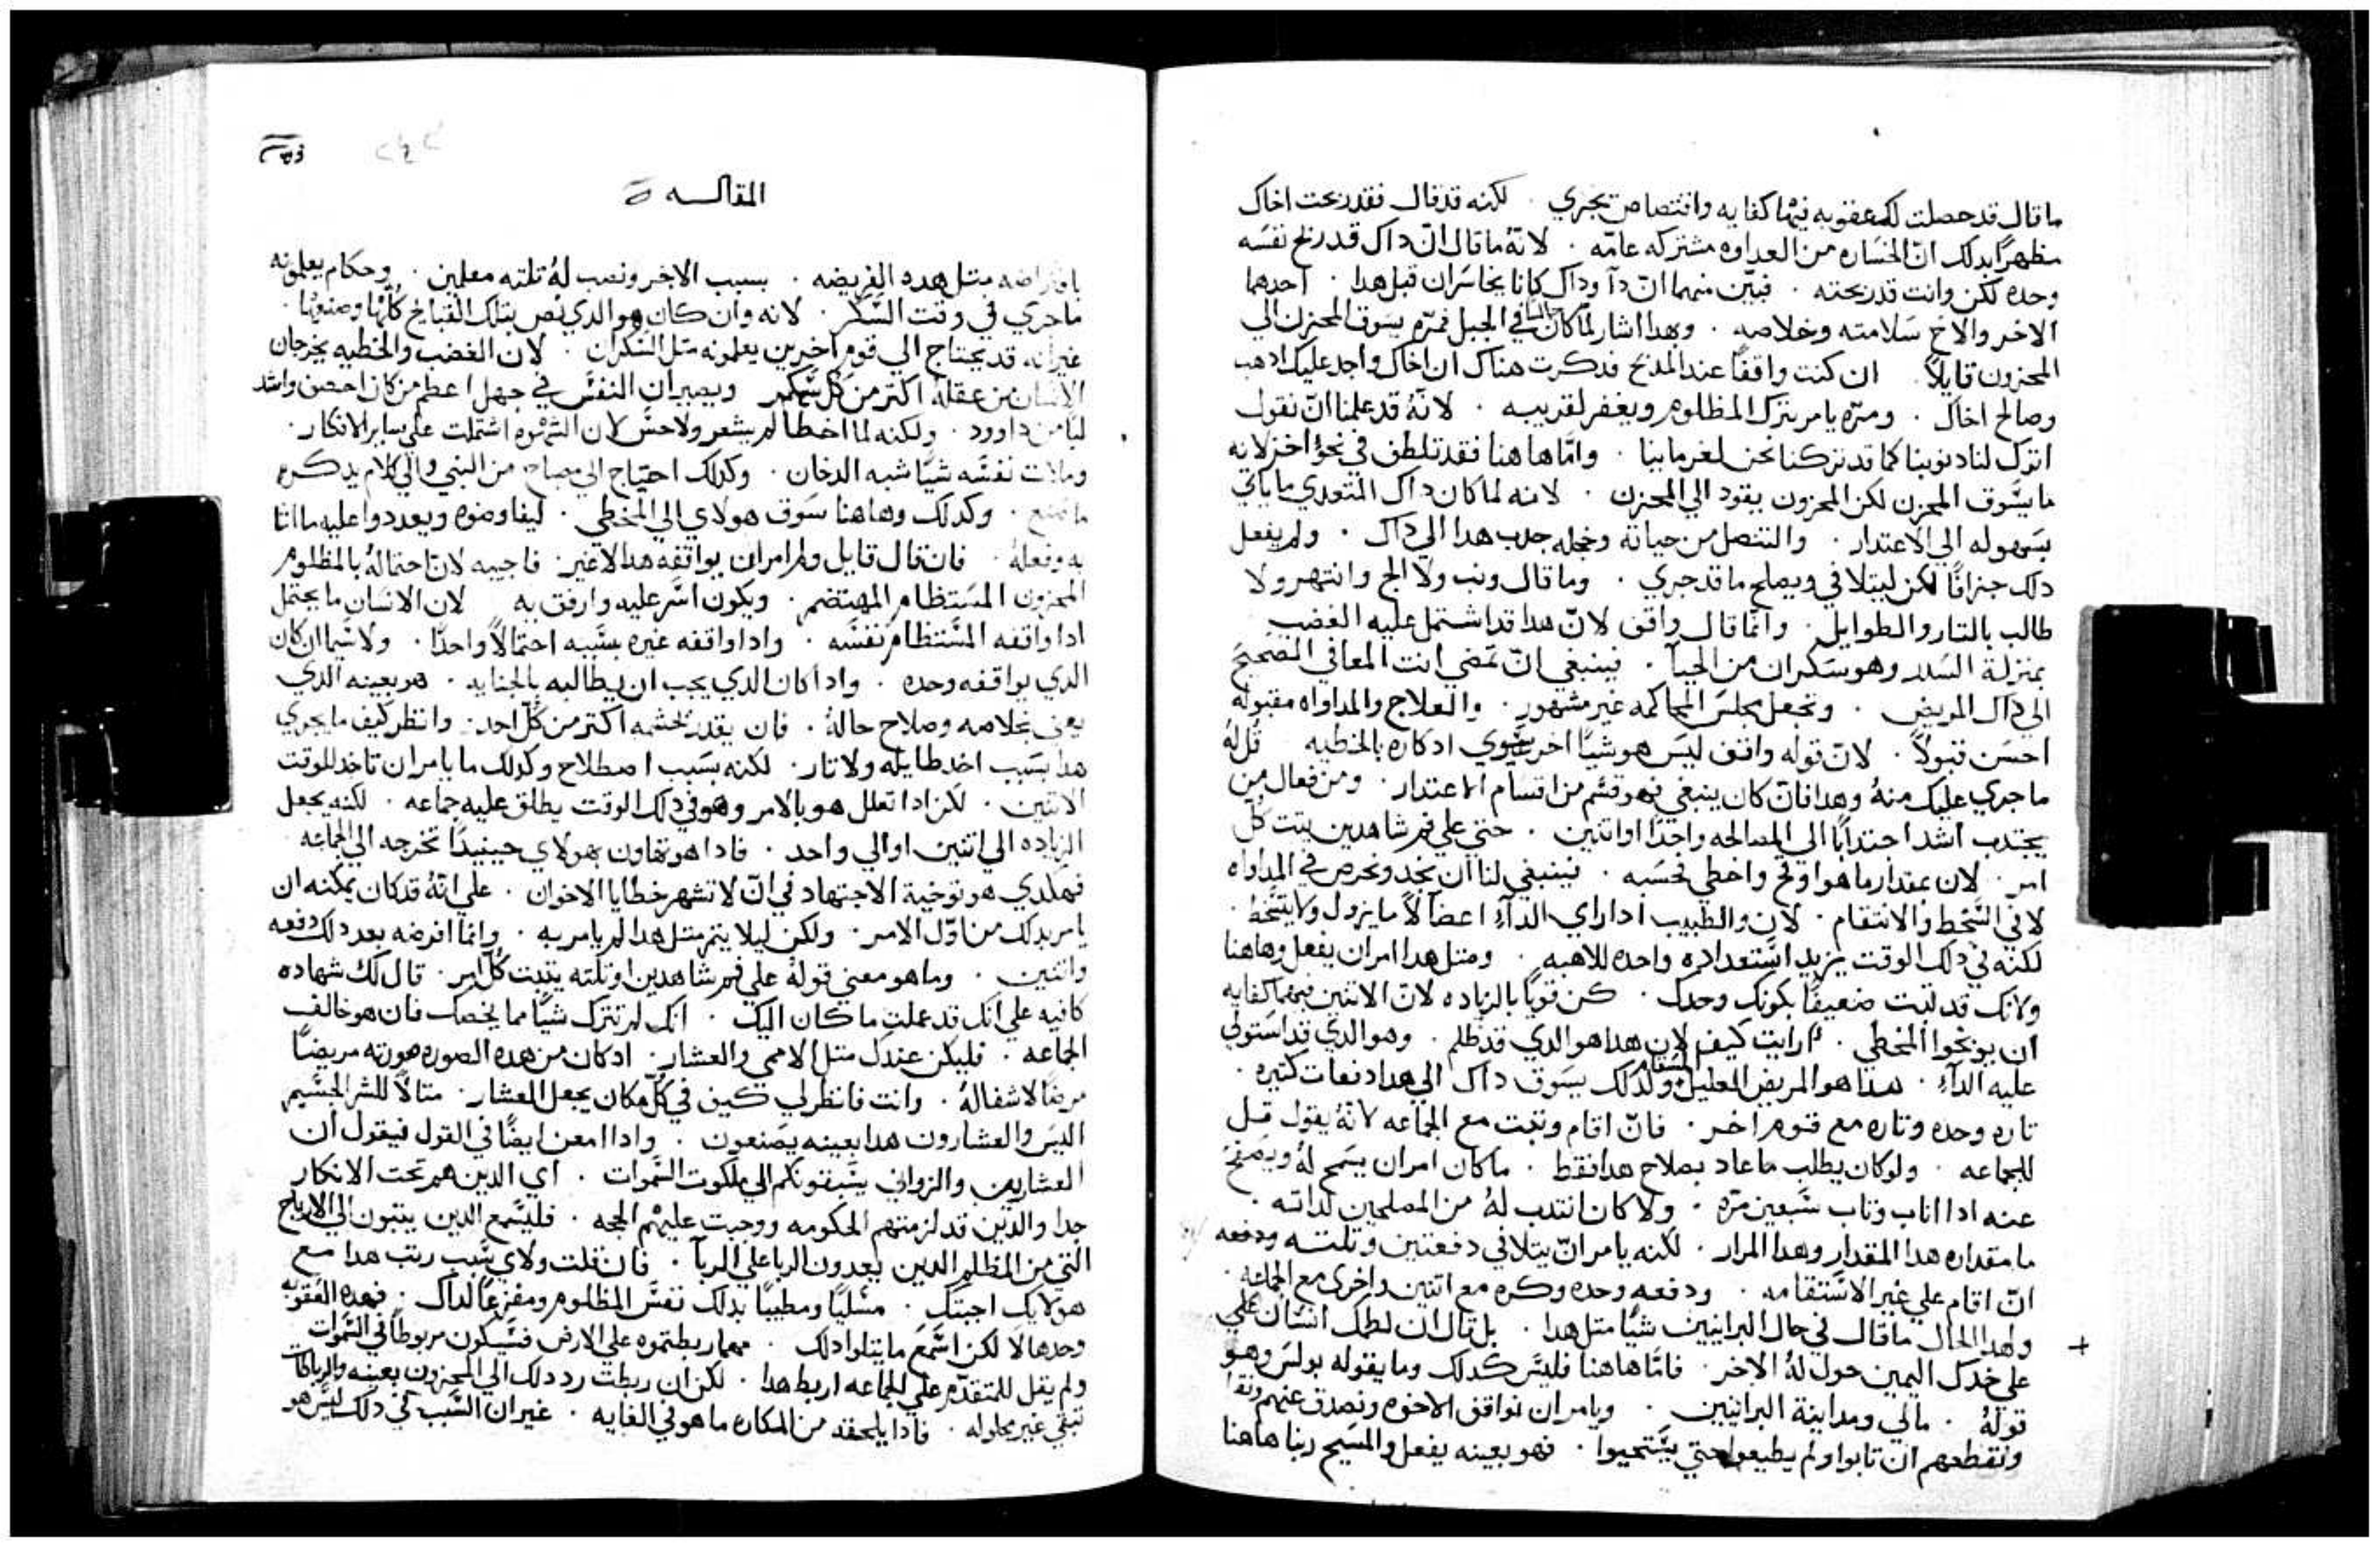 ما قال قد حصلت لك عقوبه فيها كفايه واقتصاص تجري . لكنه قد قال فقد ربحت اخاك
مظهرًا بدلك انّ الخسَاره من العداوه مشتركه عامّه . لانّهُ ما قال انّ داك قد ربح نفسَه
وحده لكن وانت قد ربحته . فبيّن منهما انّ دآ وداك كانا يخاسَران قبل هدا . احدهما
الاخر والاخ سَلامته وخلاصه . وهدا اشار لما كان جالسًا في الجبل فمرّه يسَوق المحزن الي
المحزون قايلاً . ان كنت واقفًا عند المدبح فدكرت هناك ان اخاك واجد عليك ادهب
وصالح اخاك . ومرّه يامر بترك المظلوم ويغفر لقريبه . لانّهُ قد علمنا انّ نقول
اترك لنا دنوبنا كما قد تركنا نحن لغرماينا . وامّا هاهنا فقد تلطف في نحوٍ اخر لانه
ما يسَّوق المحزن لكن المحزون يقود الي المحزن . لانه لما كان داك المتعدي ما ياتي
بسَهوله الي الاعتدار . والتنصل من حياته وخجله جدب هدا الي داك . ولم يفعل
دلك جزافًا لكن ليتلافي ويصلح ما قد جري . وما قال ونب ولا الح وانتهر ولا
طالب بالتار والطوايل . وانما قال واقق لانّ هدا قد اشتمل عليه الغضب
بمنزلة السَدر وهو سَكران من الحيآ . فينبغي انّ تمضي انت المعافي الصّحيح
الي داك المريض . وتجعل مجلسَ المحاكمه غير مشهور . والعلاج والمداواه مقبوله
احسَن قبولاً . لانّ قوله واقف ليسَ هو شيًا اخر سَوي ادكاره بالخطيه قُل لهُ
ما جري عليك منهُ وهدا فانّ كان ينبغي فهو قسَم من اقسَام الاعتدار . ومن فعال من
يجتدب اشد اجتدابًا الي المصالحه واحدًا او اتنين . حتي علي فم شاهدين يتبت كُل
امر . لان بمقدار ما هو اوقح واخطي بحسَبه . فينبغي لنا ان نجد ونحرص في المداواه
لا في السَّخط والانتقام . لان والطبيب ادا راي الدآءِ اعضالاً ما يزول ولا يتسَخط .
لكنّه في دلك الوقت يزيد استعداده واحده للاهبه . ومتل هدا امر ان يفعل وهاهنا
ولانك قد تبت ضعيفًا بكونك وحدك . كن قويًا بالزياده لانّ الاتنين فيهما كفايه
ان يوبخوا المخطي . ارايت كيف لان هدا هو الدي قد ظلم . وهو الدي قد استولي
عليه الدآءِ . هدا هو المريض العليل السَقام ولدلك يسَوق داك الي هدا دفعات كتيره .
تاره وحده وتاره مع قوم اخر . فانّ اقام وتبت مع الجماعه لانّهُ يقول قل
للجماعه . ولو كان يطلب ما عاد بصلاح هدا فقط . ما كان امر ان يسَمح لهُ ويصفح
عنه ادا اناب وتاب سَبعين مرّه . ولا كان انتدب لهُ من المصلحين لداته .
ما مقداره هدا المقدار وهدا المرار . لكنه يامر انّ يتلافي دفعتين وتلته ودفعه
انّ اقام علي غير الاسَتقامه . ودفعه وحده وكره مع اتنين واخري مع الجماعه .
ولهدا الحال ما قال في حال البرانيين شيًا متل هدا . بل قال ان لطمك انسَان علي
علي خدك اليمين حول لهُ الاخر . فامّا هاهنا فليسَ كدلك وما يقوله بولسَ وهو
قولهُ . مالي ومداينة البرانيين . ويامر ان نواقف الاخوه ونصدق عنهم ونقا
ونقطعهم ان تابوا ولم يطيعوا حتي يسَتحيوا . فهو بعينه يفعل والمسَيح ربنا هاهنا
المقالـــه
بافتراضه متل هده الفريضه . بسبب الاخر ونصب لهُ تلته معلمين . وحكام يعلمونه
ما جري في وقت السَّكر . لانه وان كان هو الدي نص بتلك القبايح كُلّها وصنعها .
غير انه قد يحتاج الي قوم اخرين يعلمونه متل السَكران . لان الغضب والخطيه يخرجان
الانسَان من عقله اكتر من كل سَكر ويصيران النفسَ في جهل اعظم من كان احصن واشد
لبًا من داوود . ولكنه لما اخطا لم يشعر ولا حسَ لان الشهوه اشتملت علي ساير الافكار .
وملات نفسَه شيًا شبه الدخان . وكدلك احتاج الي مصباح من النبي والي كلام يدكره
ما صنع . وكدلك وهاهنا سَوق هولاي الي المخطي . ليفاوضوه ويعددوا عليه ما اتا
به وفعلهُ . فان قال قايل ولم امر ان يواقفه هدا لا غير فاجيبه لانّ احتمالهُ بالمظلوم
المحزون المسَتظام المهتضم . ويكون اسَر عليه وارفق به لان الانسَان ما يحتمل
ادا واقفه المسَتظام نفسَه . وادا واقفه غيره بسَببه احتمالاً واحدًا . ولا سَيما ان كان
الدي يواقفه وحده . وادا كان الدي يجب ان يطالبه بالجنايه . هو بعينه الدي
يعني بخلاصه وصلاح حالهُ . فان يقدر يحشمه اكتر من كل احد . وانظر كيف ما يجري
هدا بسَبب اخد طايله ولا تار . لكنه بسَبب اصطلاح وكدلك ما يامر ان تاخد للوقت
الاتنين . لكن ادا تعلل هو بالامر وهو في دلك الوقت يطلق عليه جماعه . لكنه يجعل
الزياده الي اتنين او الي واحد . فادا هو تهاون بهولاي حينيدًا تخرجه الي الجماعه .
فهكدي هو توخية الاجتهاد في انّ لا تشهر خطايا الاخوان . علي انّهُ قد كان يمكنه ان
يامر بدلك من اوّل الامر . ولكن ليلا يتم متل هدا لم يامر به . وانما افرضه بعد دلك دفعه
واتنين . وما هو معني قولهُ علي فم شاهدين او تلته يتبت كُل امر . قال لك شهاده
كافيه علي انك قد عملت ما كان اليك . انك لم تترك شيًا مما يخصك فان هو خالف
الجماعه . فليكن عندك متل الاممي والعشار . اد كان من هده الصوره صورته مريضًا
مرضًا لا شفا لهُ . وانت فانظر لي كيف في كُلّ مكان يجعل العشار . متالاً للشر الجسَيم
اليسَ والعشارون هدا بعينه يصَنعون . وادا امعن ايضًا في القول فيقول ان
العشارين والزواني يسَبقونكم الي ملكوت السَّموات . اي الدين هم تحت الانكار
جدا والدين قد لزمتهم الحكومه ووجبت عليهم الحجه . فليسَمع الدين يتبون الي الارباح
التي من المظلم الدين يعدون الربا علي الربآ . فان قلت ولاي سَبب رتب هدا مع
هولايك اجبتك . مسَليًا ومطيبًا بدلك نفسَ المظلوم ومفزعًا لداك . فهده العقوبه
وحدها لا لكن اسَمع ما يتلوا دلك . مهما ربطتموه علي الارض فسَيكون مربوطًا في السَّموات
ولم يقل للمتقدّم علي الجماعه اربط هدا . لكن ان ربطت رد دلك الي المحزون بعينه والرباطات
تبقي غير محلوله . فادا يلحقه من المكاره ما هو في الغايه . غير ان السَّبب في دلك ليسَ هو